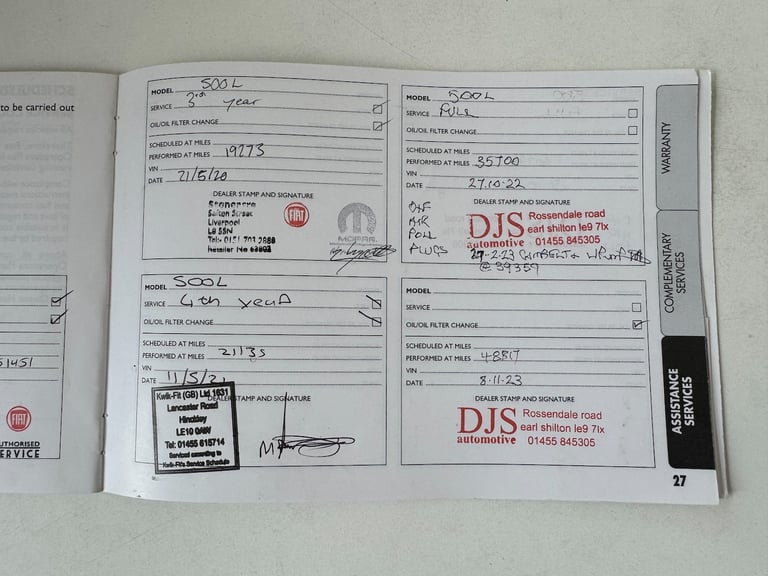 to be carried out
51451
FIAT
UTHORISED
ERVICE
MODEL 500L
SERVICE 3rd year
OIL/OIL FILTER CHANGE
SCHEDULED AT MILES
PERFORMED AT MILES 19273
VIN
DATE 21/5/20
DEALER STAMP AND SIGNATURE
Stoneacre
Sefton Street
Liverpool
L8 5SN
Tel: 0151 703 2888
Retailer No
FIAT
MOPAR
MODEL 500L
SERVICE 4th year
OIL/OIL FILTER CHANGE
SCHEDULED AT MILES
PERFORMED AT MILES 21135
VIN
DATE 11/5/21
DEALER STAMP AND SIGNATURE
Kwik-Fit (GB) Ltd 1631
Lancaster Road
Hinckley
LE10 0AW
Tel: 01455 615714
Serviced according to
Kwik-Fit's Service Schedule
MODEL 500L
SERVICE FULL
OIL/OIL FILTER CHANGE
SCHEDULED AT MILES
PERFORMED AT MILES 35700
VIN
DATE 27.10.22
DEALER STAMP AND SIGNATURE
O+F
AIR
POLL
PLUGS
DJS
automotive
Rossendale road
earl shilton le9 7lx
01455 845305
27-2-23 CAMBELT + W/PUMP
@ 39359
MODEL
SERVICE
OIL/OIL FILTER CHANGE
SCHEDULED AT MILES
PERFORMED AT MILES 48817
VIN
DATE 8.11.23
DEALER STAMP AND SIGNATURE
DJS
automotive
Rossendale road
earl shilton le9 7lx
01455 845305
WARRANTY
COMPLEMENTARY
SERVICES
ASSISTANCE
SERVICES
27